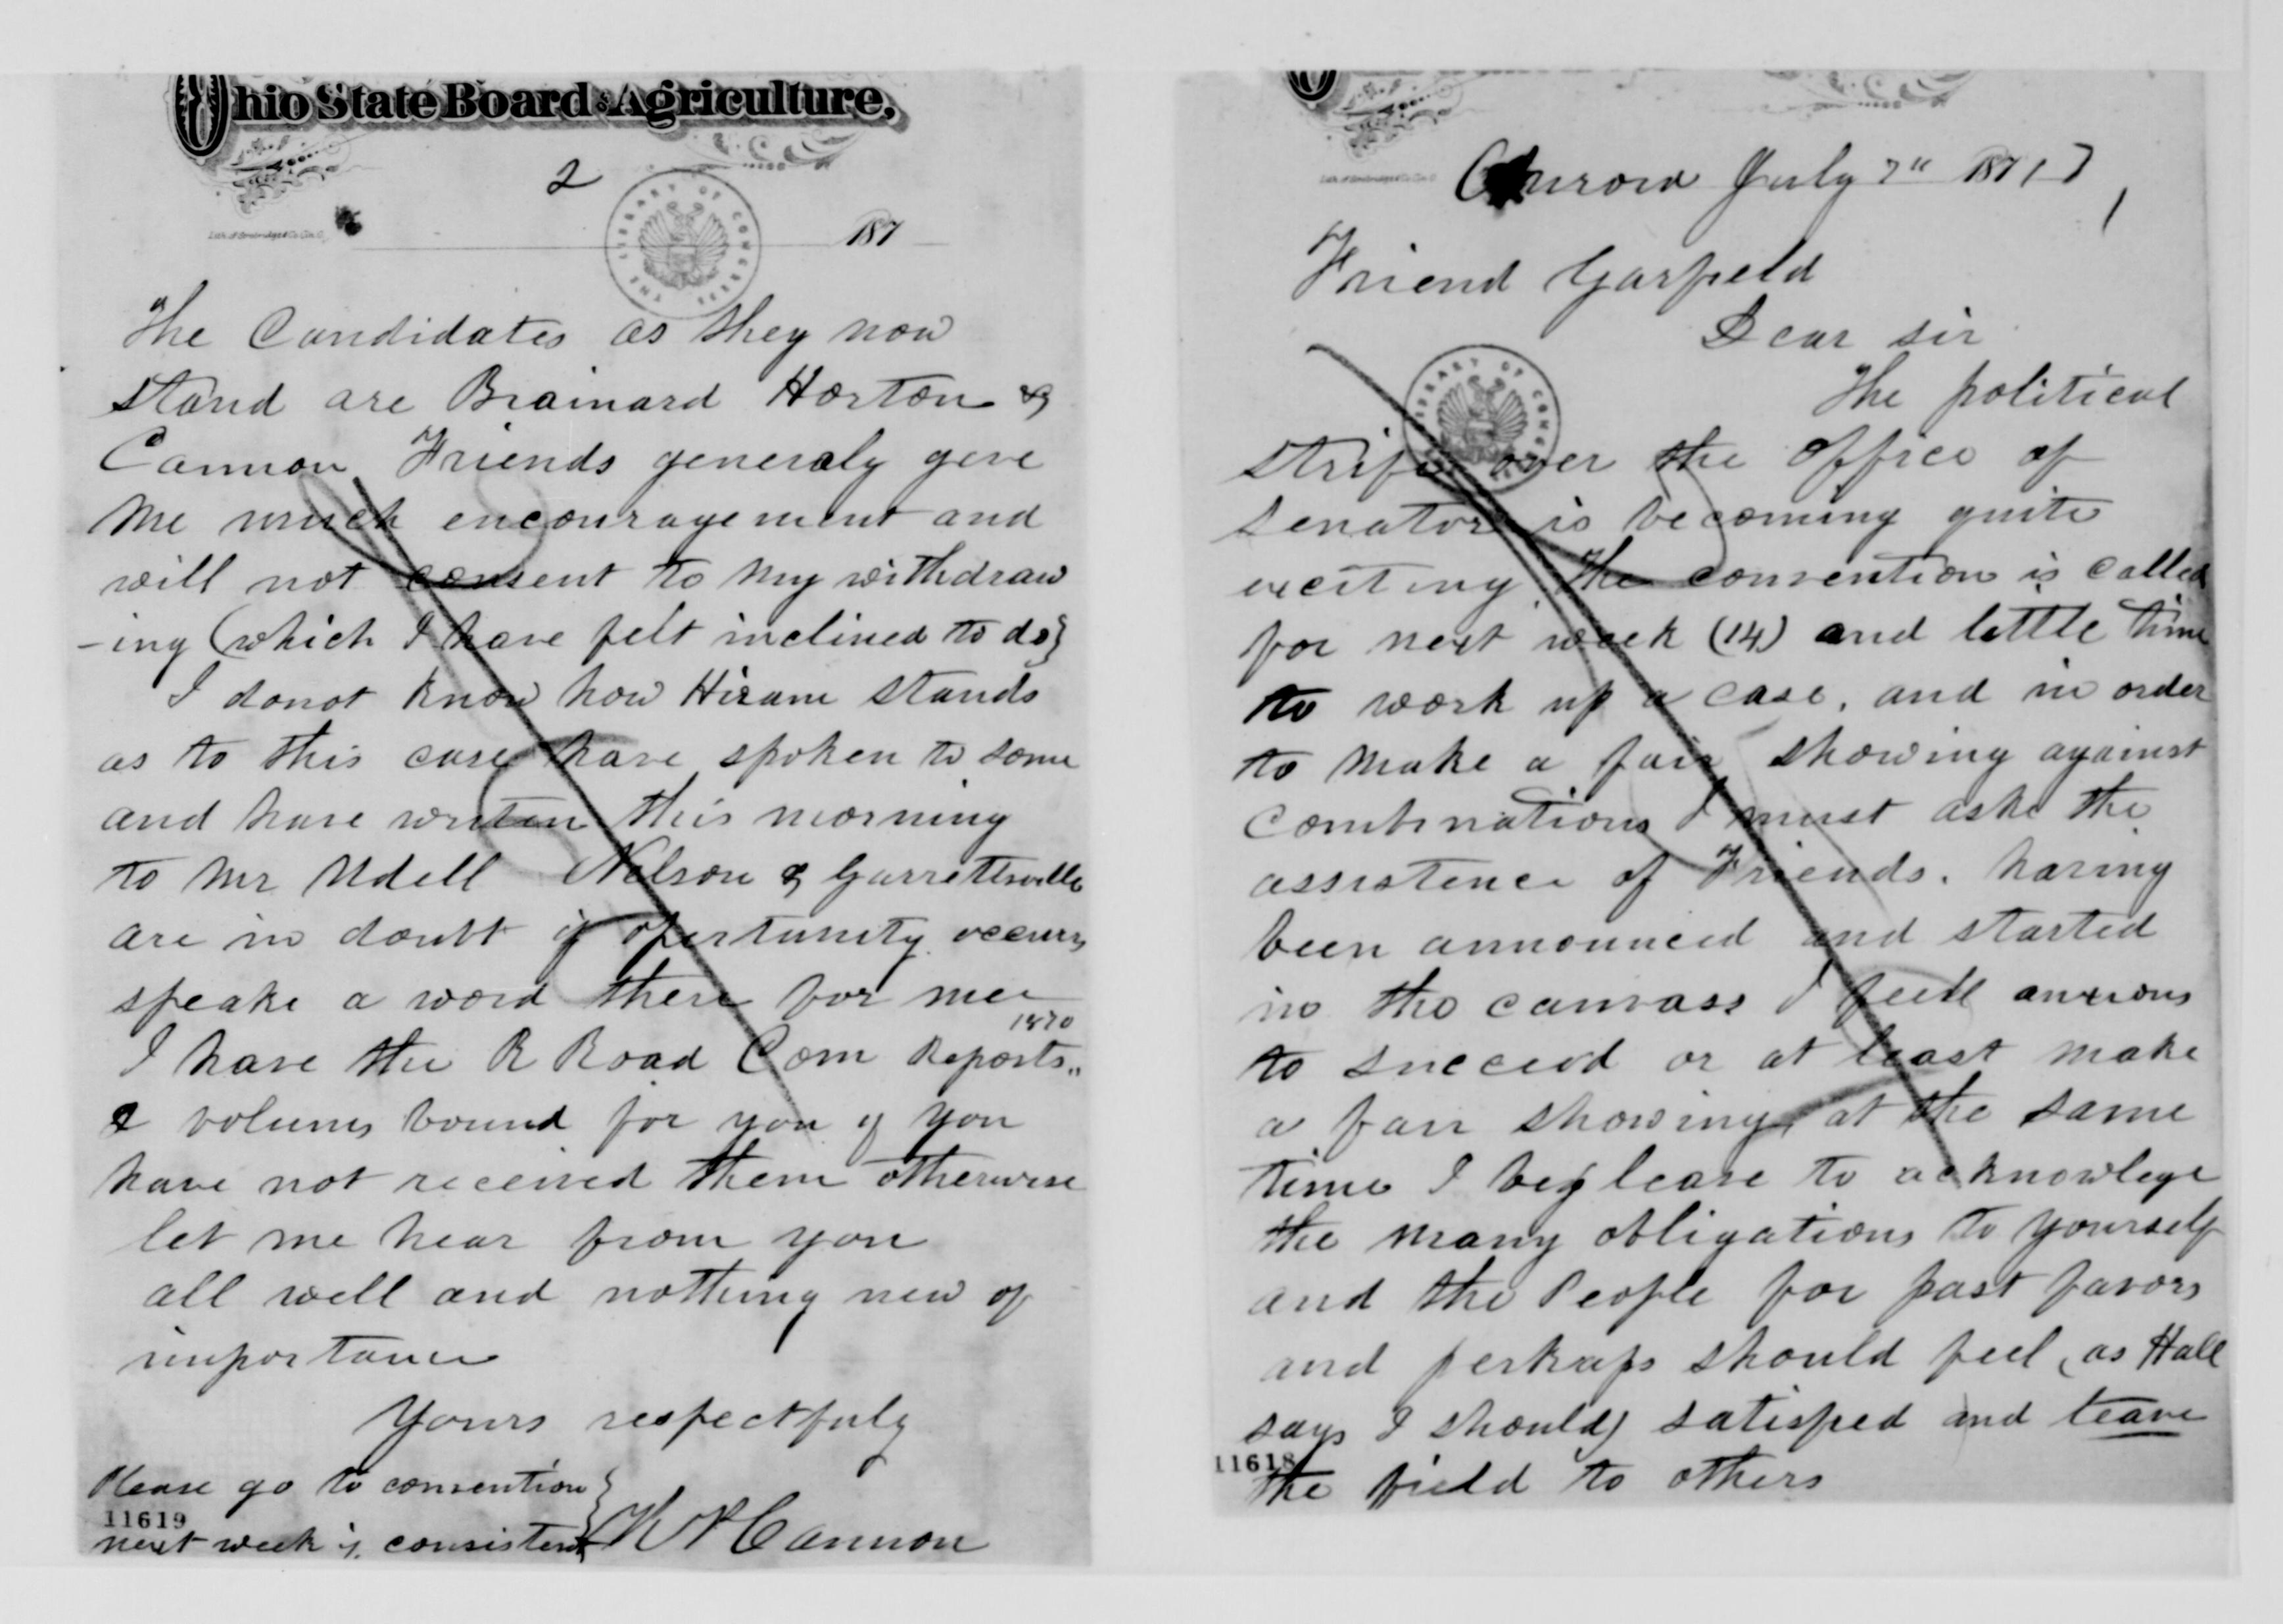 Ohio State Board of Agriculture,
2
187
THE LIBRARY OF CONGRESS
The Candidates as they now
stand are Brainard Horton &
Cannon Friends generaly give
me much encouragement and
will not consent to my withdraw
-ing (which I have felt inclined to do)
I donot know how Hiram stands
as to this case have spoken to some
and have written this morning
to Mr Udell Nelson & Garrettsville
are in doubt if opertunity occurs
speake a word there for me
1870
I have the R Road Com Reports
2 volumes bound for you if you
have not received them otherwise
let me hear from you
all well and nothing new of
importance
Yours respectfuly
Please go to convention
11619
next week if consistent
Cannon
Aurora July 7th 1871
Friend Garfield
Dear sir
The political
THE LIBRARY OF CONGRESS
strife over the office of
senator is becoming quite
exciting. The convention is called
for next week (14) and little time
to work up a case, and in order
to make a fair showing against
combinations I must aske the
assistence of Friends. having
been announced and started
in the canvass I feell anxious
to succeed or at least make
a fair showing, at the same
time I beg leave to acknowlege
the many obligations to yourself
and the People for past favors
and perhaps should feel (as Hall
says I should) satisfied and leave
11618
the field to others